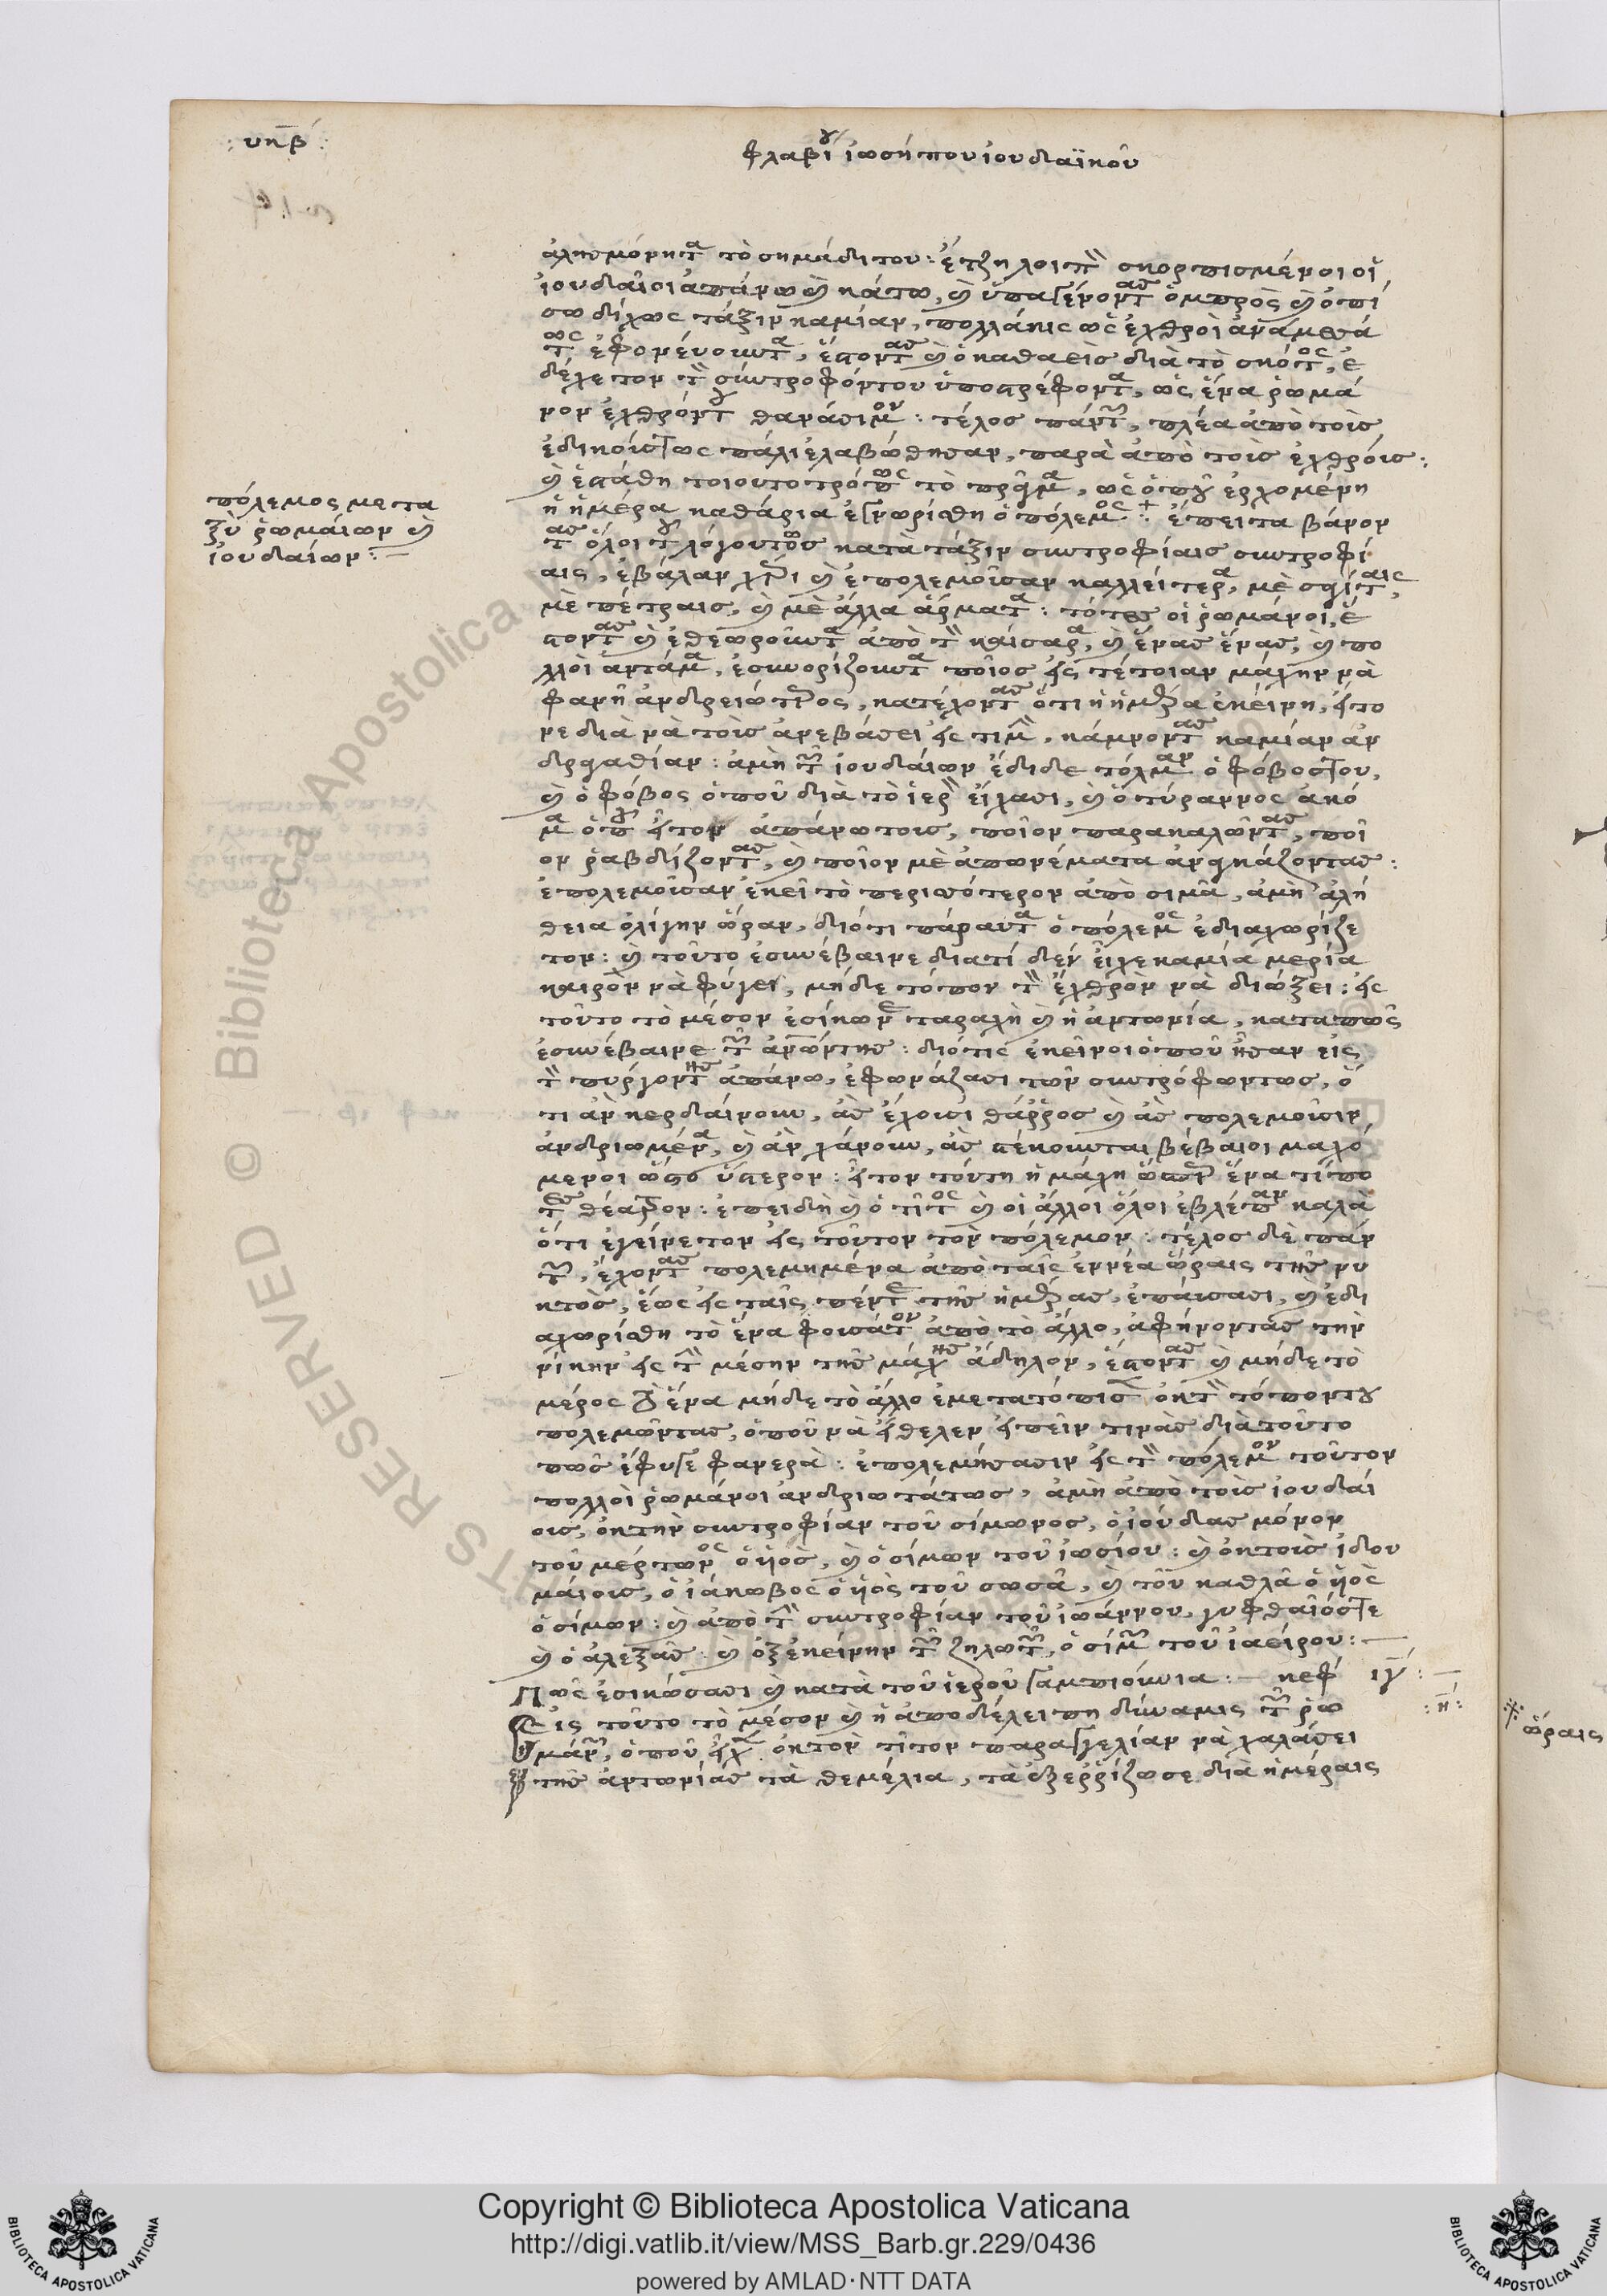 : υνβ :
φλαβίου ἰωσήπου ἰουδαϊκοῦ
ἀλησμόνητα τὸ σημάδι του: ἔτζη λοιπὸν σκορπισμένοι οἱ
ἰουδαῖοι ἀπάνω καὶ κάτω, καὶ ὑπαγένοντας ὀμπρὸς καὶ ὀπί
σω δίχως τάξιν καμίαν, πολλάκις ὡς ἐχθροὶ ἀνάμεσά
τως ἐφονεύουντα, ἔστοντας καὶ ὁ καθαεὶς διὰ τὸ σκότος, ἐ
δέχετον τὸν σύντροφόντου ὑποστρέφοντα, ὡς ἕνα ῥωμά
νον ἐχθρόντου θανάσιμον: τέλος πάντων, πλέα ἀπὸ τοὺς
ἐδικούστως πάλι ἐλαβώθησαν, παρὰ ἀπὸ τοὺς ἐχθρούς:
καὶ ἐστάθη τοιουτοτρόπως τὸ πρᾶγμα, ὡς ὁποῦ ἐρχομένη
ἡ ἡμέρα καθάρια ἐγνωρίσθη ὁ πόλεμος: ἔπειτα βάνον
τας ὅλοι τοῦ λόγουτους κατὰ τάξιν συντροφίαις συντροφί
αις, ἐβάλαν χέρι καὶ ἐπολεμοῦσαν καλλείτερα, μὲ σαΐταις,
μὲ πέτραις, καὶ μὲ ἄλλα ἄρματα: τότες οἱ ῥωμάνοι, ἔ
στοντας καὶ ἐθεωροῦντα ἀπὸ τὸν καίσαρα, καὶ ἕνας ἕνας, καὶ πο
λλοὶ ἀντάμα, ἐσυνορίζουντα ποῖος εἰς τέτοιαν μάχην νὰ
φανῆ ἀνδρειώτερος, κατέχοντας ὅτι ἡ ἡμέρα ἐκείνη, ἦτο
νε διὰ νὰ τοὺς ἀνεβάσει εἰς τιμὴν, κάμνοντας καμίαν ἀν
δραγαθίαν: ἀμὴ τῶν ἰουδαίων ἔδιδε τόλμαν ὁ φόβοςτου,
καὶ ὁ φόβος ὁποῦ δια τὸ ἱερὸν εἴχασι, καὶ ὁ τύραννος ἀκό
μα ὁποῦ ἦτον ἀπάνωτους, ποῖον παρακαλῶντας, ποῖ
ον ῥαβδίζοντας, καὶ ποῖον μὲ ἀπωνέματα ἀναγκάζοντας:
ἐπολεμοῦσαν ἐκεῖ τὸ περισσότερον ἀπὸ σιμὰ, ἀμὴ ἀλή
θεια ὀλίγην ὥραν, διότι πάραυτα ὁ πόλεμος ἐδιαχωρίζε
τον: καὶ τοῦτο ἐσυνέβαινε διατί δὲν εἶχε καμία μερία
καιρὸν νὰ φύγει, μήδε τόπον τὸν ἐχθρὸν νὰ διώξει: εἰς
τοῦτο τὸ μέσον ἐσίκωνε ταραχὴ καὶ ἡ ἀντωνία, καταπῶς
ἐσυνέβαινε τῶν ἀνώντης: διότις ἐκεῖνοι ὁποῦ ἦσαν εἰς
τὸν πύργοντης ἀπάνω, ἐφωνάζασι τῶν συντρόφωντως, ὅ
τι ἂν κερδαίνουν, ἂς ἔχουσι θάῤῥος καὶ ἂς πολεμοῦσιν
ἀνδριωμένα, καὶ ἂν χάνουν, ἂς στέκουνται βέβαιοι μαχό
μενοι ὥστο ὕστερον: ἦτον τούτη ἡ μάχη ὥσπερ ἕνα τίπο
τες θέατρον: ἐπειδὴ καὶ ὁ τῖτος καὶ οἱ ἄλλοι ὅλοι ἐβλέπαν καλὰ
ὅτι ἐγείνετον εἰς τοῦτον τὸν πόλεμον: τέλος δὲ πάν
των, ἔχοντας πολεμημένα ἀπὸ ταῖς ἐννέα ὥραις τῆς νυ
κτὸς, ἕως εἰς ταῖς πέντε τῆς ἡμέρας, ἐπαύσασι, καὶ ἐδι
αχωρίσθη τὸ ἕνα φουσάτον ἀπὸ τὸ ἄλλο, ἀφήνοντας τὴν
νίκην εἰς τὴν μέσην τῆς μάχης ἄδηλον, ἔστοντας καὶ μήδε τὸ
μέρος τὸ ἕνα μήδε τὸ ἄλλο ἐμετατόπισε ὀκ τὸν τόποντου
πολεμῶντας, ὁποῦ νὰ ἤθελεν εἰπεῖν τινὰς διὰ τοῦτο
πῶς ἔφυγε φανερά: ἐπολεμήσασιν εἰς τὸν πόλεμον τοῦτον
πολλοὶ ῥωμάνοι ἀνδριωτάτως, ἀμὴ ἀπὸ τοὺς ἰουδαί
ους, ὀκ τὴν συντροφίαν τοῦ σίμωνος, ὁ ἰούδας μόνον
τοῦ μέρτωνος ὁ ὑιὸς, καὶ ὁ σίμων τοῦ ἰωσίου: καὶ ὀκ τοὺς ἰδου
μαίους, ὁ ἰάκωβος ὁ ὑιὸς τοῦ σωσᾶ, καὶ τοῦ καθλᾶ ὁ ὑιὸς
ὁ σίμων: καὶ ἀπὸ τὴν συντροφίαν τοῦ ἰωάννου, γυφθαῖόστε
καὶ ὁ ἀλεξᾶς: καὶ ὀξ ἐκείνην τῶν ζηλωτῶν, ὁ σίμων τοῦ ἰαείρου:
Πῶς ἐσικώσασι καὶ κατὰ τοῦ ἱεροῦ γαμπιόνια: κεφ ιγ:
Εἰς τοῦτο τὸ μέσον καὶ ἡ ἀποδέλειπη δύναμις τῶν ῥω
μάνων, ὁποῦ εἶχε ὀκ τὸν τῖτον παραγγελίαν νὰ χαλάσει
τῆς ἀντωνίας τὰ θεμέλια, τὰ ὀξερρίζωσε διὰ ἡμέραις
πόλεμος μετα
ξὺ ῥωμαίων καὶ
ἰουδαίων:
: η :
ὥραις
Copyright © Biblioteca Apostolica Vaticana
http://digi.vatlib.it/view/MSS_Barb.gr.229/0436
powered by AMLAD·NTT DATA